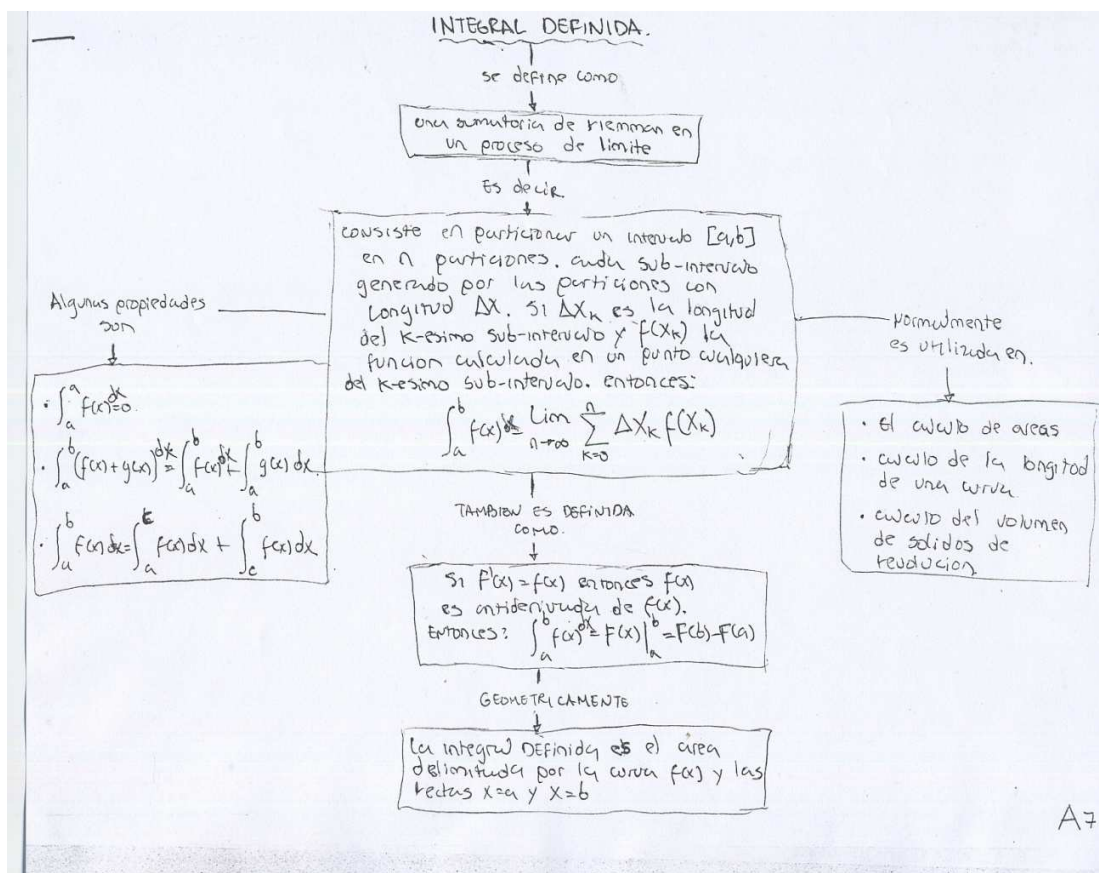 INTEGRAL DEFINIDA.
se define como
una sumatoria de riemman en
un proceso de limite
Es decir
consiste en particionar un intervalo [a,b]
en n particiones. cada sub-intervalo
generado por las particiones con
longitud ΔX. Si ΔXₖ es la longitud
del k-esimo sub-intervalo y f(Xₖ) la
funcion calculada en un punto cualquiera
del k-esimo sub-intervalo. entonces:
∫ₐᵇ f(x)dx = Lim n→∞ ∑ₖ₌₀ⁿ ΔXₖ f(Xₖ)
Algunas propiedades
son
· ∫ₐᵃ f(x)dx=0.
· ∫ₐᵇ (f(x)+g(x))dx = ∫ₐᵇ f(x)dx + ∫ₐᵇ g(x)dx
· ∫ₐᵇ f(x)dx = ∫ₐᶜ f(x)dx + ∫꜀ᵇ f(x)dx
Normalmente
es utilizada en.
· El calculo de areas
· calculo de la longitod
de una curva
· calculo del volumen
de solidos de
revolucion
TAMBIEN ES DEFINIDA
COMO.
Si F'(x) = f(x) entonces f(x)
es antiderivada de f(x).
Entonces: ∫ₐᵇ f(x)dx = F(x)|ₐᵇ = F(b)-F(a)
GEOMETRICAMENTE
La integral DEFINIDA es el area
delimitada por la curva f(x) y las
rectas X=a y X=b
A7